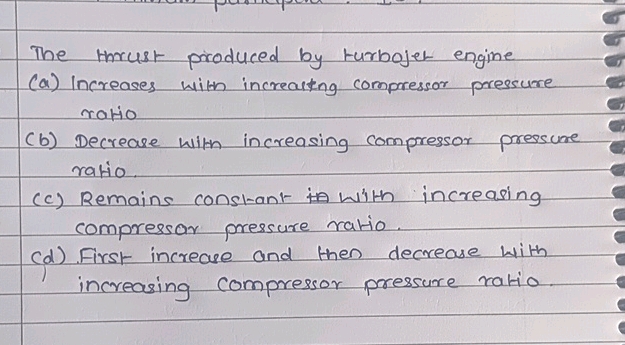 The thrust produced by turbojet engine
(a) Increases with increasing compressor pressure
ratio
(b) Decrease with increasing compressor pressure
ratio.
(c) Remains constant with increasing
compressor pressure ratio.
(d) First increase and then decrease with
increasing compressor pressure ratio.